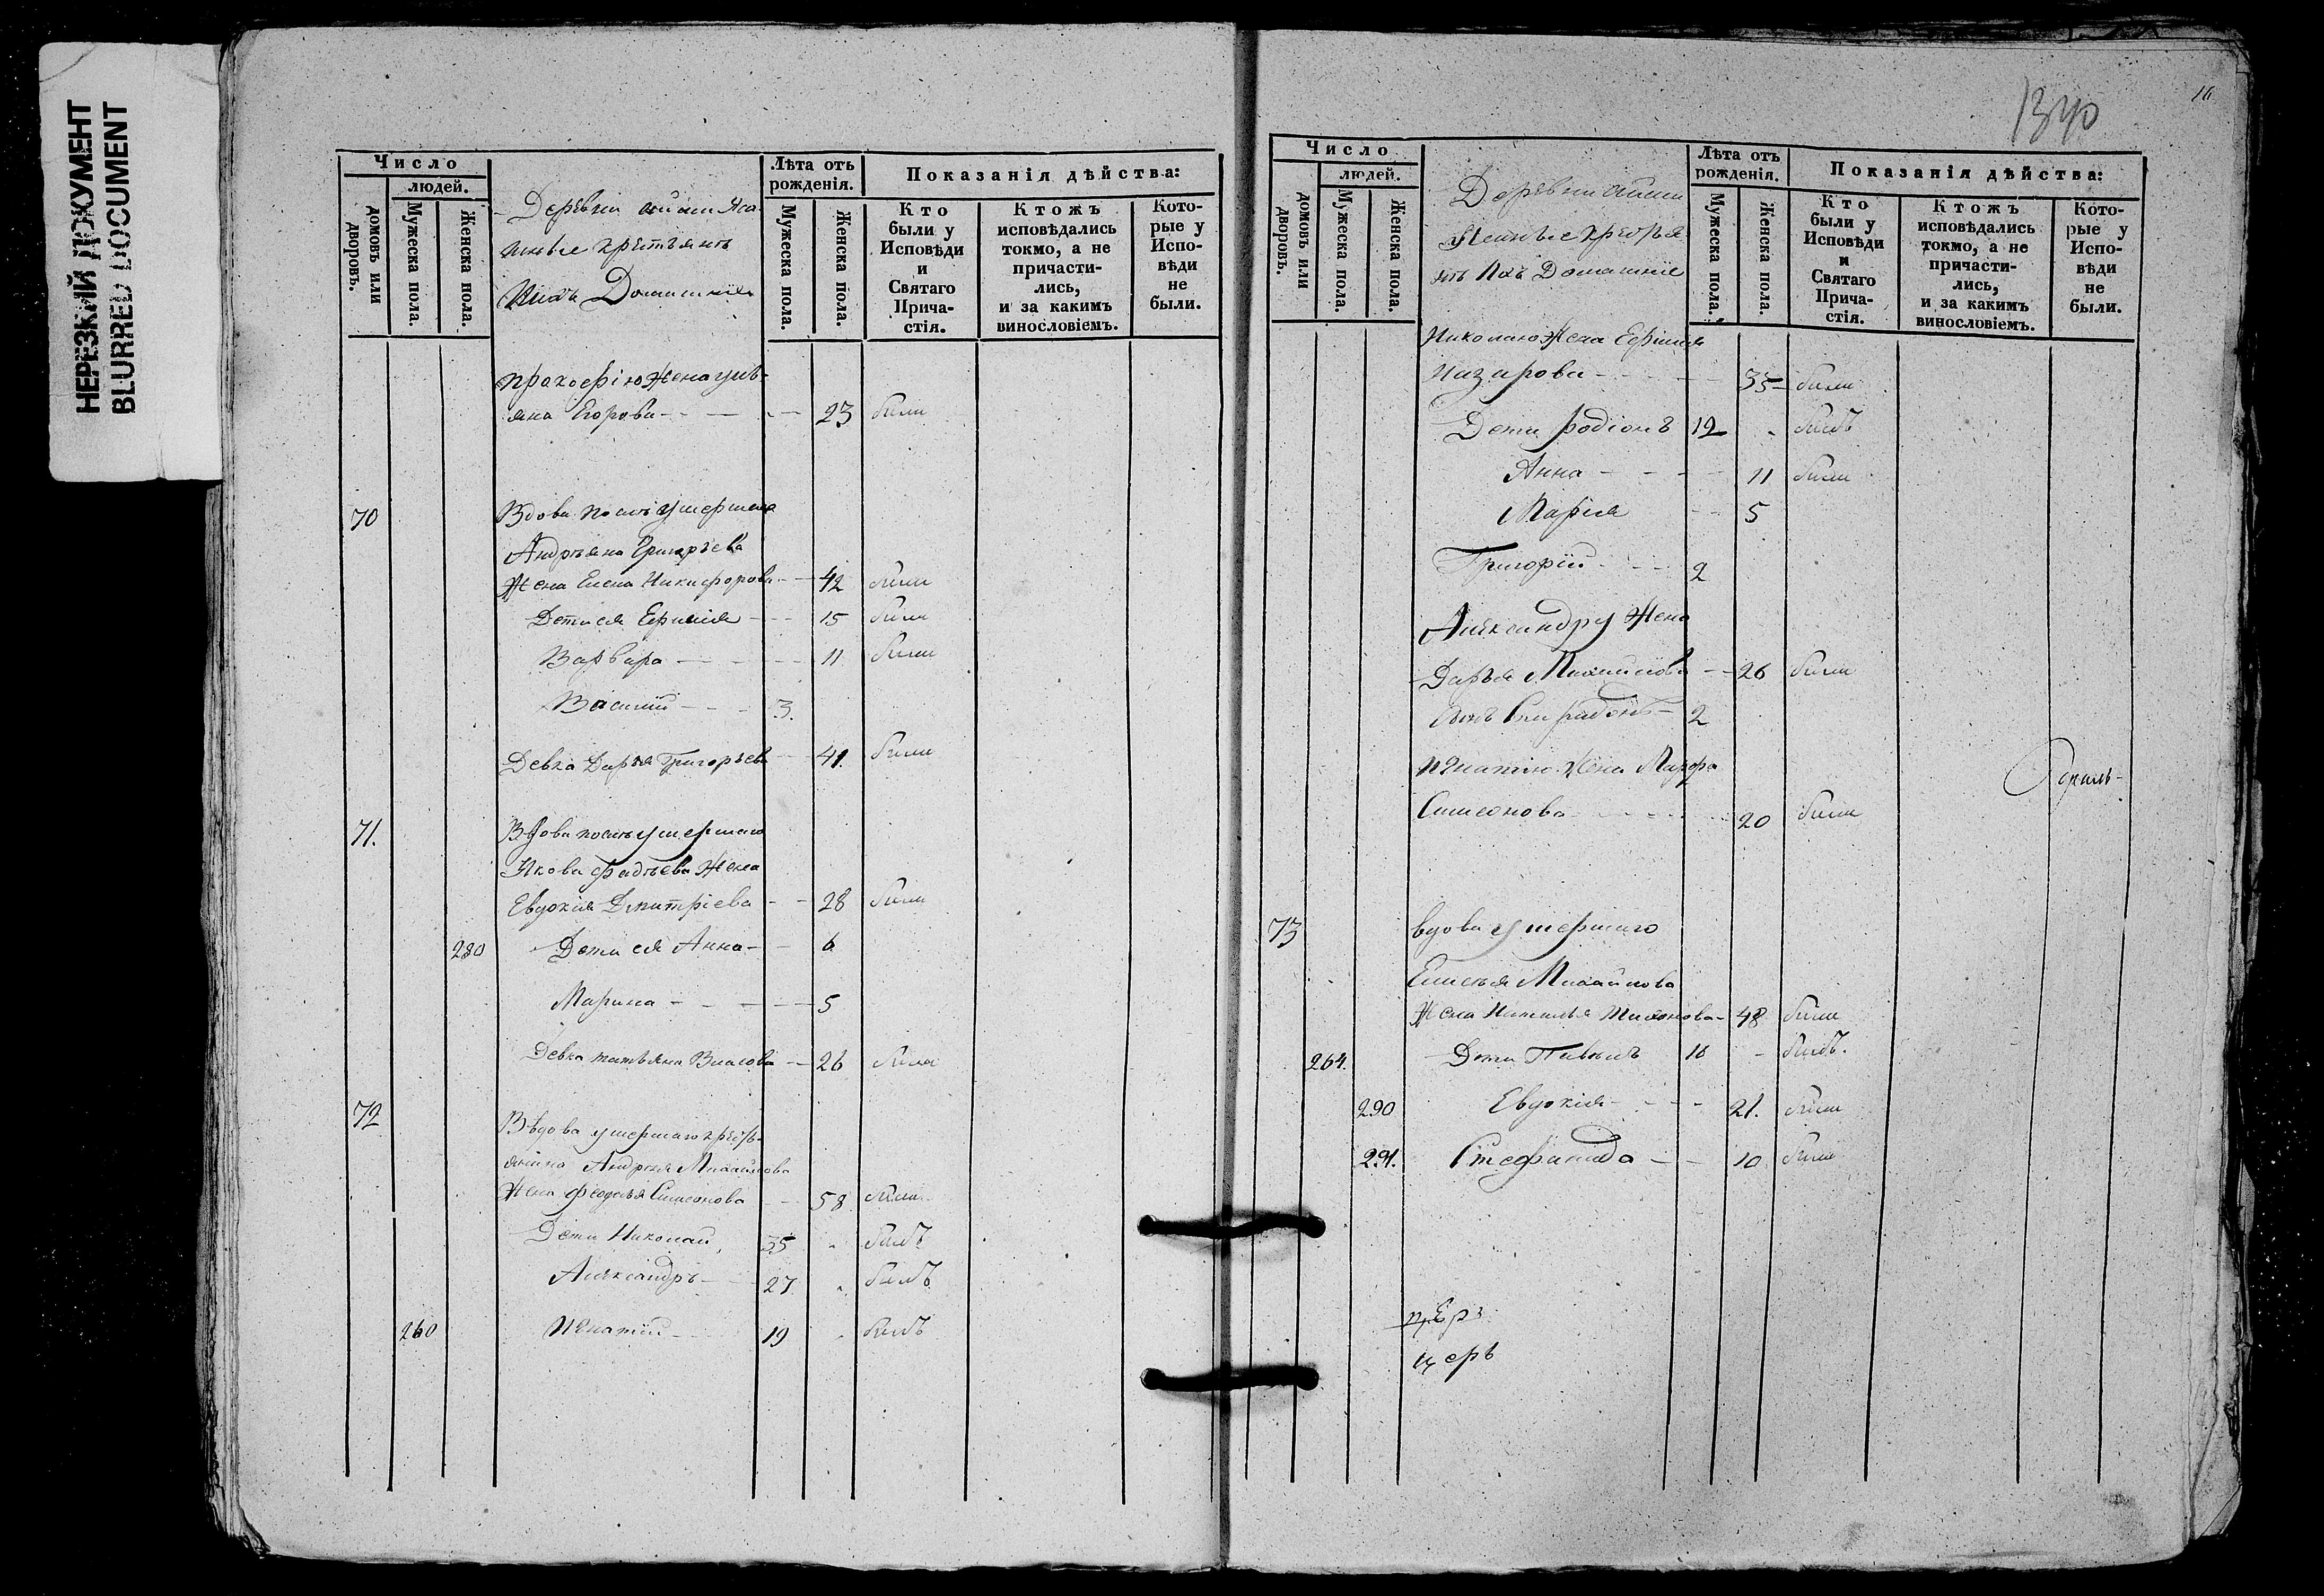 НЕРЕЗКИЙ ДОКУМЕНТ
BLURRED DOCUMENT
Число
людей.
домовъ или дворовъ.
Мужеска пола.
Женска пола.
Деревни
крестьянъ
Домашнія
Лѣта отъ рожденія.
Мужеска пола.
Женска пола.
Показанія дѣйства:
Кто были у Исповѣди и Святаго Причастія.
Ктожъ исповѣдались токмо, а не причастились, и за какимъ винословіемъ.
Которые у Исповѣди не были.
Прокофію Жена Улья-
яна Егорова 23 была
70 Вдова послѣ умершаго
Андрѣяна Григорьева
Жена Елена Никифорова 42 была
Дети ея Ефимія 15 была
Варвара 11 была
Василій 3.
Девка Дарья Григорьева 41. была
71. Вдова послѣ умершаго
Якова Фадѣева Жена
Евдокія Дмитріева 28 была
280 Дети ея Анна 6
Марина 5
Девка татьяна Власова 26 была
72 Вѣдова умершаго кресть-
янина Андрея Михайлова
Жена Федосья Симеонова 58 была
Дети Николай 35 былъ
Александръ 27 былъ
260 Игнатій 19 былъ
1340
16
Число
людей.
домовъ или дворовъ.
Мужеска пола.
Женска пола.
Деревни
крестья-
нъ Ихъ Домашніе
Лѣта отъ рожденія.
Мужеска пола.
Женска пола.
Показанія дѣйства:
Кто были у Исповѣди и Святаго Причастія.
Ктожъ исповѣдались токмо, а не причастились, и за какимъ винословіемъ.
Которые у Исповѣди не были.
Николаю Жена Ефимия
Назарова 35 была
Дети Родіонъ 12 былъ
Анна 11 была
Марія 5
Григорій 2
Александру Жена
Дарья Михайлова 26 была
Сынъ Спиридонъ 2
Игнатію Жена Марфа
Симеонова 20 была
73 вдова умершаго
Елисѣя Михайлова
Жена Наталья Тихонова 48 была
264. Дети Павелъ 16 былъ.
290 Евдокія 21. была
291. Стефанида 10 была